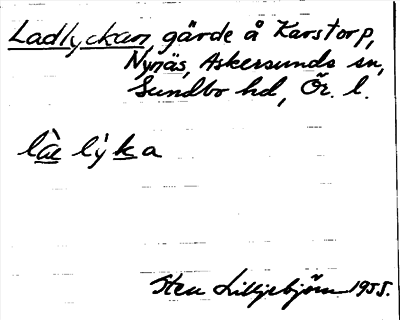 Ladlyckan, gärde å Karstorp,
Nynäs, Askersunds sn,
Sundbo hd, Ör. l.
làe lỳka
Sten Lilljebjörn 1955.